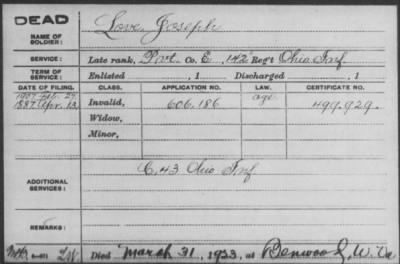 DEAD
NAME OF SOLDIER: Love, Joseph
SERVICE: Late rank, Pvt. Co. E, 142" Reg't Ohio Inf.
TERM OF SERVICE: Enlisted , 1 Discharged , 1
DATE OF FILING. CLASS. APPLICATION NO. LAW. CERTIFICATE NO.
1907 Feb. 27 age
1887 Apr. 13 Invalid, 606.186 499.929.
Widow,
Minor,
ADDITIONAL SERVICES: C, 43 Ohio Inf
REMARKS:
Died March 31, 1933, at Benwood, W. Va